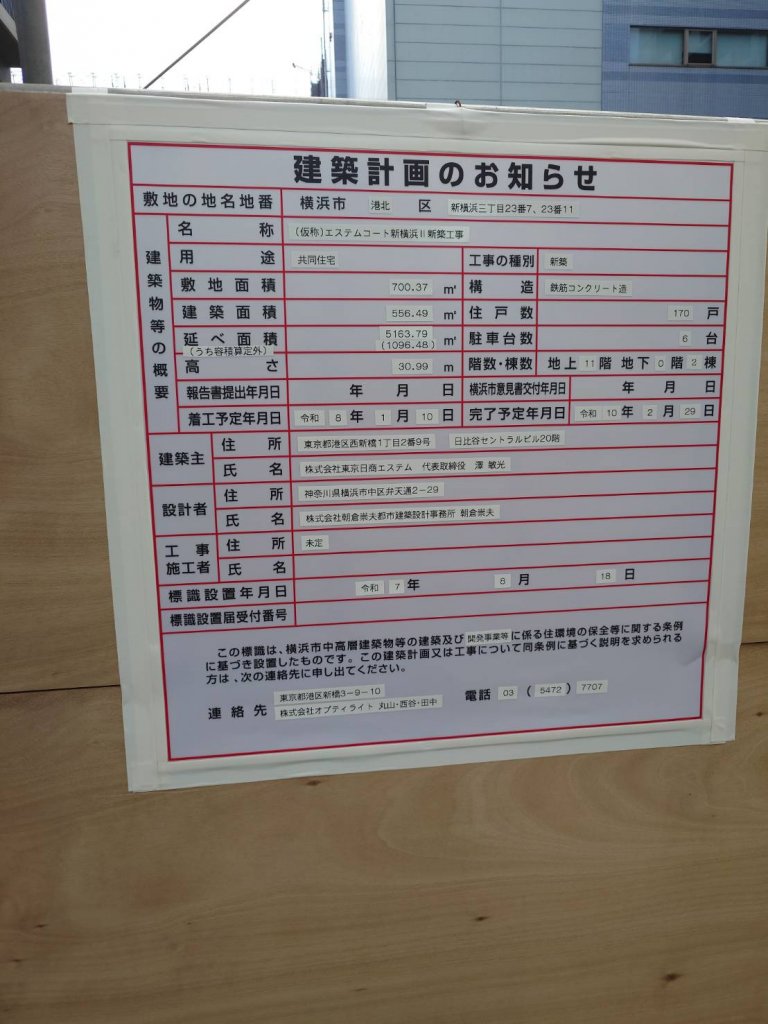 建築計画のお知らせ
敷地の地名地番 横浜市 港北 区 新横浜三丁目23番7、23番11
建築物等の概要
名称 (仮称)エステムコート新横浜Ⅱ新築工事
用途 共同住宅 工事の種別 新築
敷地面積 700.37 ㎡ 構造 鉄筋コンクリート造
建築面積 556.49 ㎡ 住戸数 170 戸
延べ面積 5163.79 ㎡ 駐車台数 6 台
(うち容積算定外) (1096.48)
高さ 30.99 m 階数・棟数 地上 11 階 地下 0 階 2 棟
報告書提出年月日 年 月 日 横浜市意見書交付年月日 年 月 日
着工予定年月日 令和 8 年 1 月 10 日 完了予定年月日 令和 10 年 2 月 29 日
建築主 住所 東京都港区西新橋1丁目2番9号 日比谷セントラルビル20階
氏名 株式会社東京日商エステム 代表取締役 澤 敏光
設計者 住所 神奈川県横浜市中区弁天通2-29
氏名 株式会社朝倉崇夫都市建築設計事務所 朝倉崇夫
工事施工者 住所 未定
氏名
標識設置年月日 令和 7 年 8 月 18 日
標識設置届受付番号
この標識は、横浜市中高層建築物等の建築及び 開発事業等 に係る住環境の保全等に関する条例
に基づき設置したものです。この建築計画又は工事について同条例に基づく説明を求められる
方は、次の連絡先に申し出てください。
東京都港区新橋3-9-10
連絡先 株式会社オプティライト 丸山・西谷・田中 電話 03 (5472) 7707